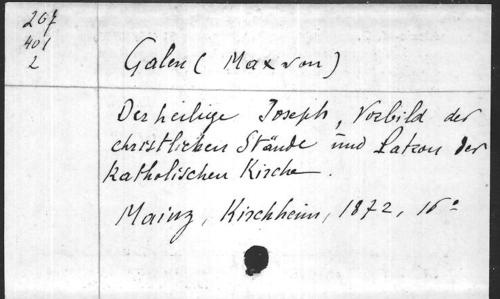 207
401
2
Galen ( Max von )
Der heilige Joseph, Vorbild der
christlichen Stände und Patron der
katholischen Kirche.
Mainz, Kirchheim, 1872, 16°